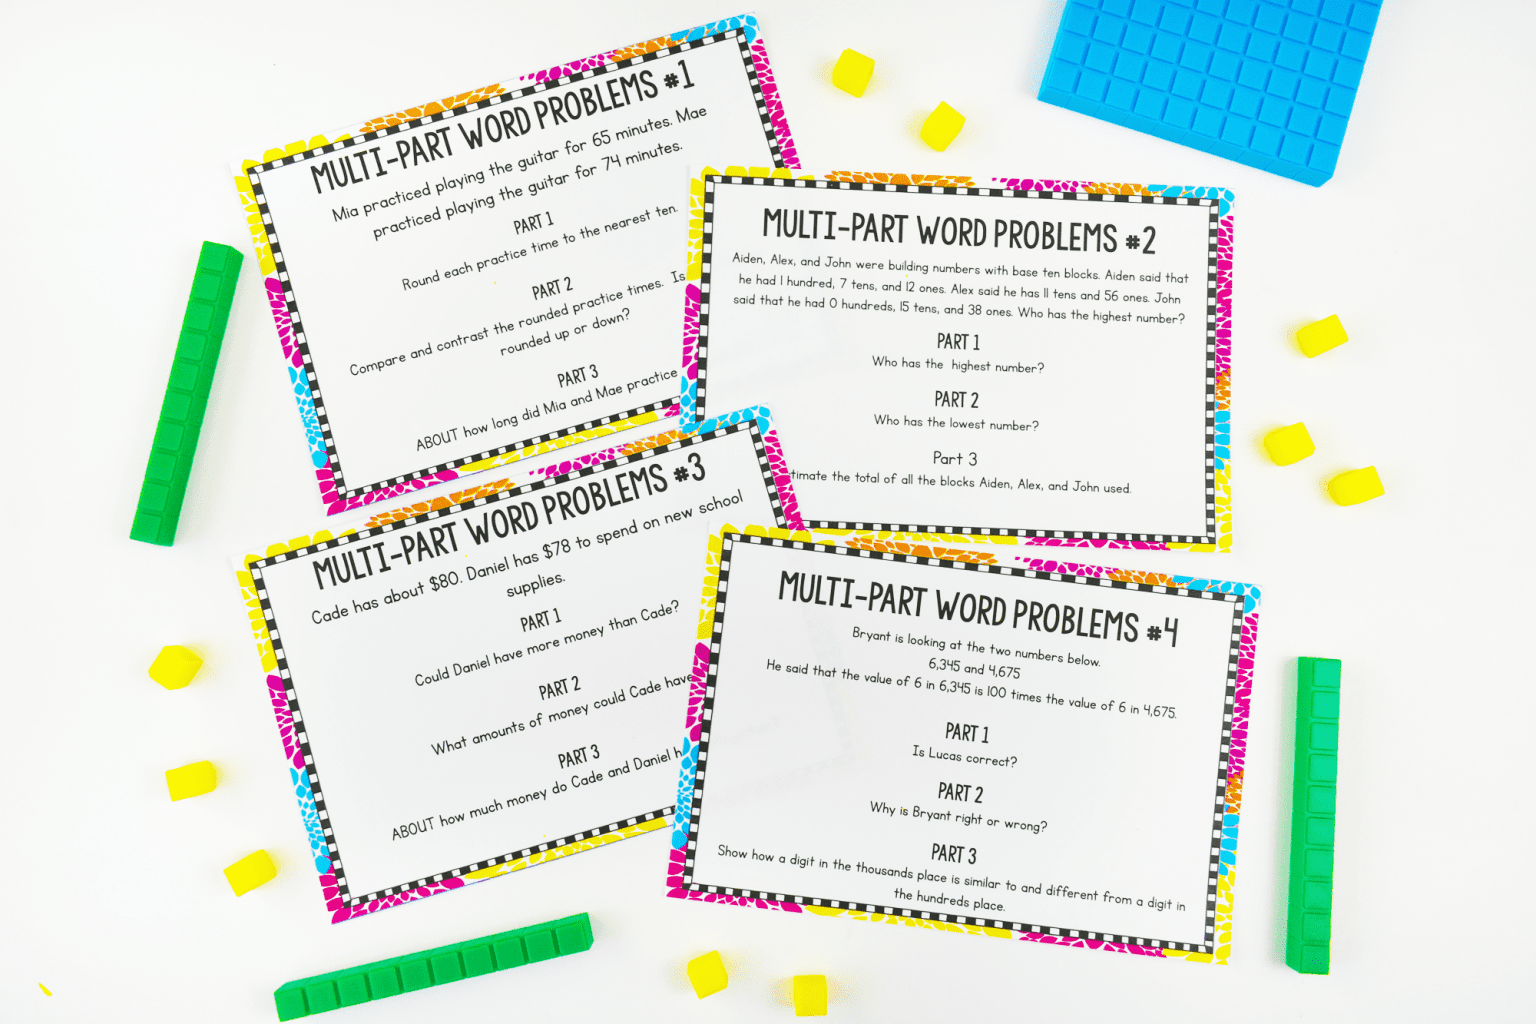 MULTI-PART WORD PROBLEMS #1
Mia practiced playing the guitar for 65 minutes. Mae
practiced playing the guitar for 74 minutes.
PART 1
Round each practice time to the nearest ten.
PART 2
Compare and contrast the rounded practice times. Is
rounded up or down?
PART 3
ABOUT how long did Mia and Mae practice
MULTI-PART WORD PROBLEMS #2
Aiden, Alex, and John were building numbers with base ten blocks. Aiden said that
he had 1 hundred, 7 tens, and 12 ones. Alex said he has 11 tens and 56 ones. John
said that he had 0 hundreds, 15 tens, and 38 ones. Who has the highest number?
PART 1
Who has the highest number?
PART 2
Who has the lowest number?
Part 3
the total of all the blocks Aiden, Alex, and John used.
MULTI-PART WORD PROBLEMS #3
Cade has about $80. Daniel has $78 to spend on new school
supplies.
PART 1
Could Daniel have more money than Cade?
PART 2
What amounts of money could Cade have
PART 3
ABOUT how much money do Cade and Daniel
MULTI-PART WORD PROBLEMS #4
Bryant is looking at the two numbers below.
6,345 and 4,675
He said that the value of 6 in 6,345 is 100 times the value of 6 in 4,675.
PART 1
Is Lucas correct?
PART 2
Why is Bryant right or wrong?
PART 3
Show how a digit in the thousands place is similar to and different from a digit in
the hundreds place.